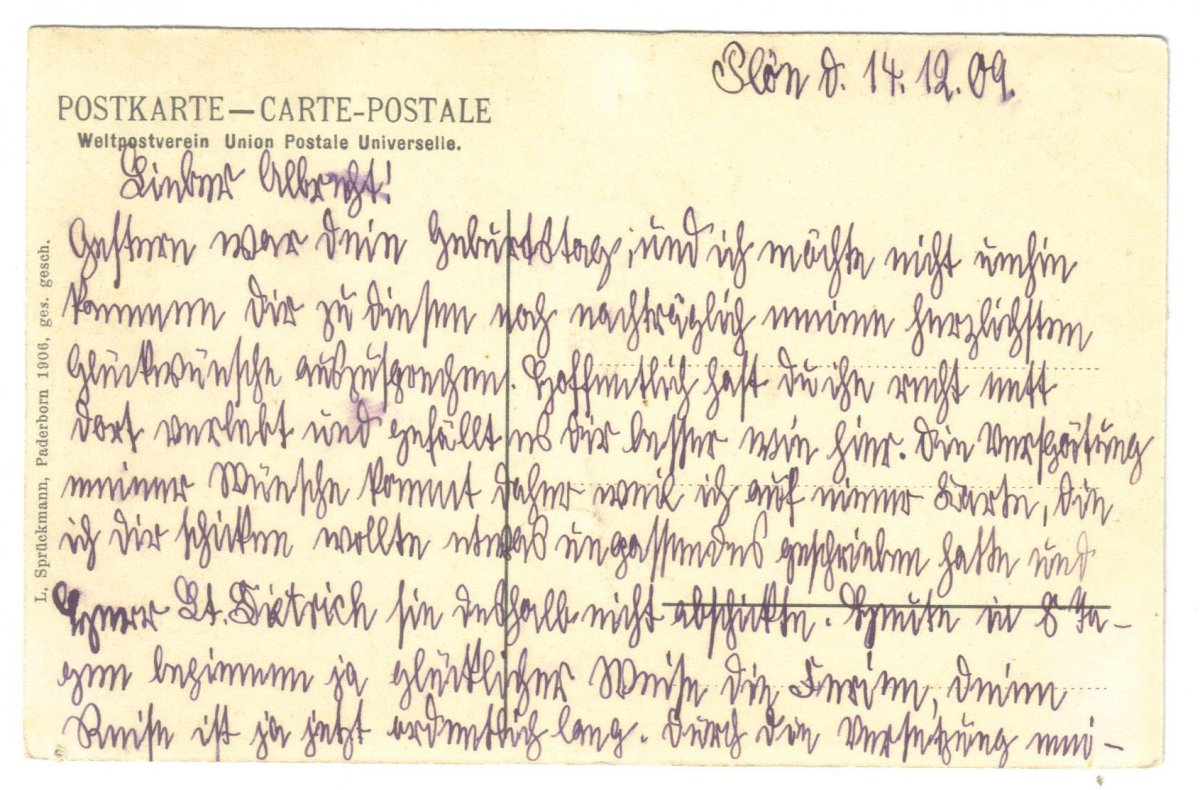 Plön d. 14. 12. 09.
POSTKARTE — CARTE-POSTALE
Weltpostverein Union Postale Universelle.
Lieber Albrecht!
Gestern war dein Geburtstag, und ich möchte nicht umhin
kommen Dir zu diesem noch nachträglich meine herzlichsten
Glückwünsche auszusprechen. Hoffentlich hast du ihn recht nett
dort verlebt und gefällt es dir besser wie hier. Die Verspätung
meiner Wünsche kommt daher weil ich auf einer Karte, die
ich dir schicken wollte etwas unpassendes geschrieben hatte und
Herr Lt. Dietrich sie deshalb nicht abschickte. Heute in 8 Ta-
gen beginnen ja glücklicher Weise die Ferien, deine
Reise ist ja jetzt ordentlich lang. Durch die Versetzung mei-
L. Sprückmann, Paderborn 1906, ges. gesch.